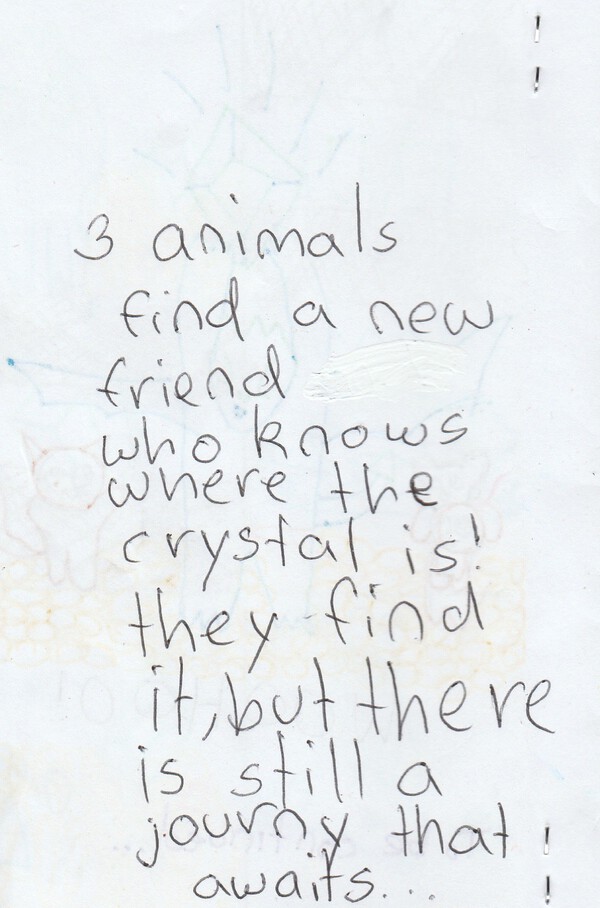 3 animals
find a new
friend
who knows
where the
crystal is!
they find
it, but there
is still a
journy that
awaits...